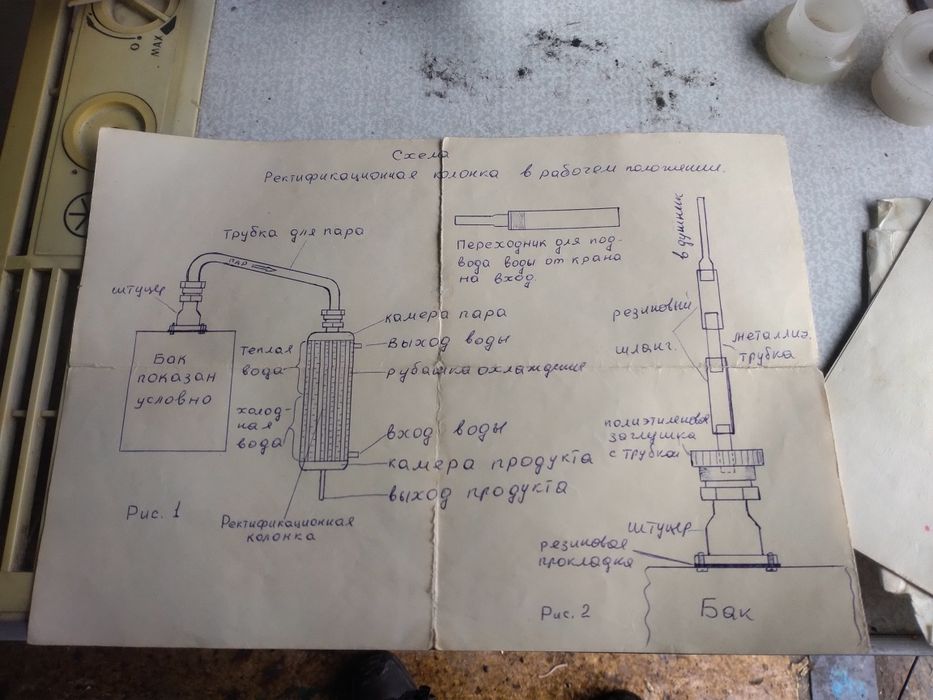 MAX
0.
Схема
Ректификационная колонка в рабочем положении.
Трубка для пара
ПАР
штуцер
Бак
показан
условно
теплая
вода
холод-
ная
вода
камера пара
выход воды
рубашка охлаждения
вход воды
камера продукта
выход продукта
Ректификационная
колонка
Рис. 1
Переходник для под-
вода воды от крана
на вход.
в душник
резиновый
шланг.
металлич.
трубка
полиэтиленовая
заглушка
с трубкой
штуцер
резиновая
прокладка
Бак
Рис. 2